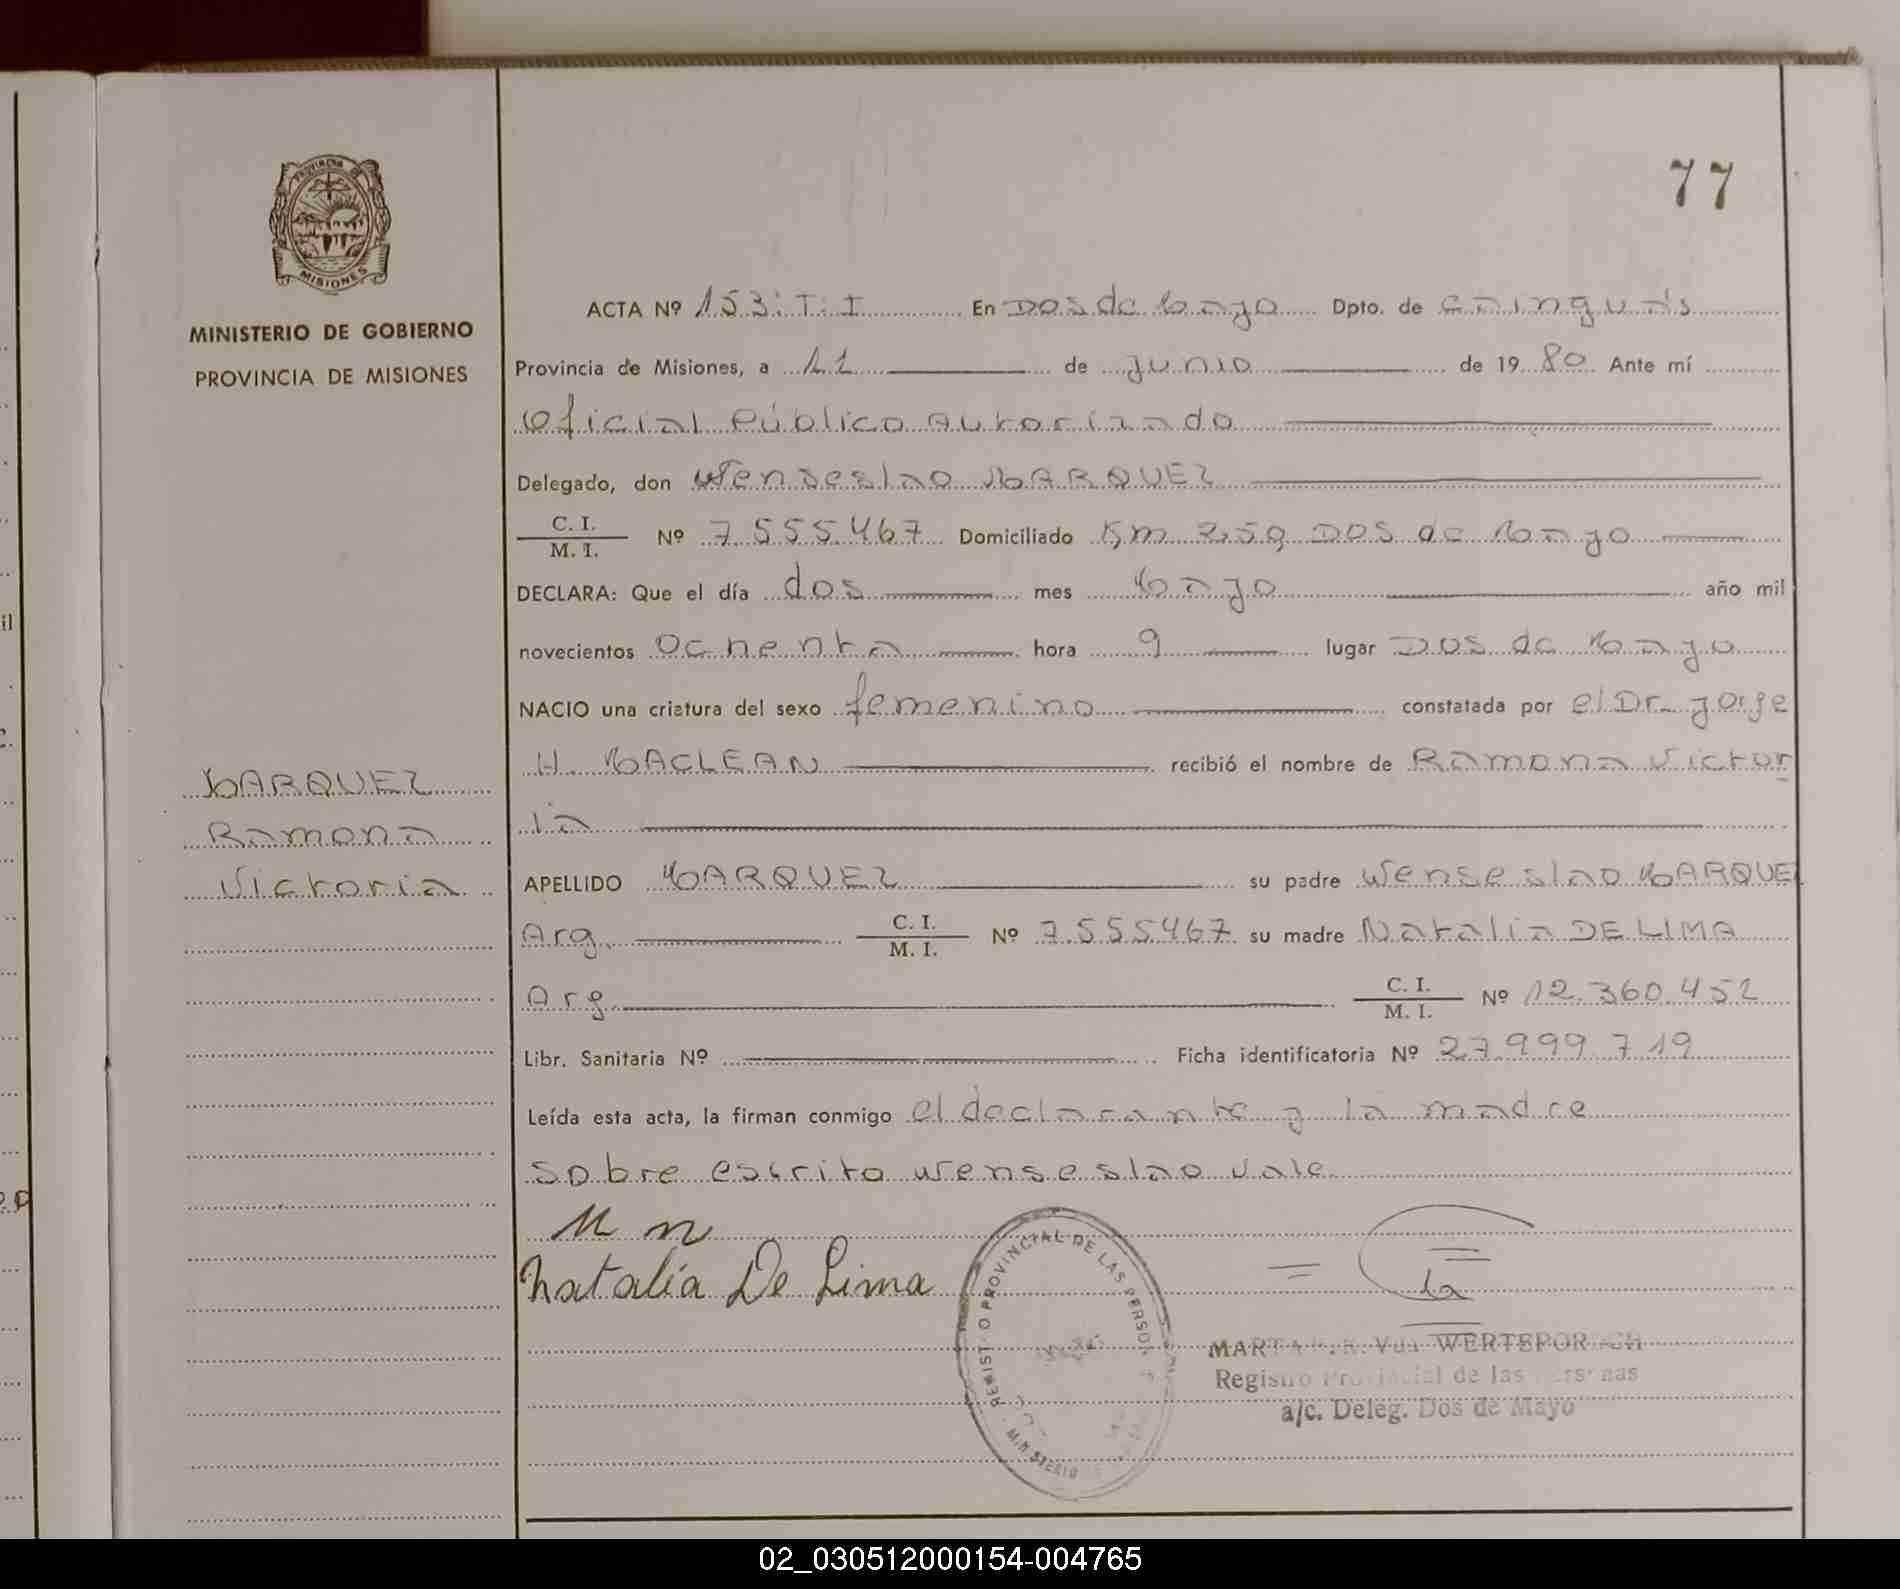 77
PROVINCIA DE
MISIONES
MINISTERIO DE GOBIERNO
PROVINCIA DE MISIONES
MARQUEZ
Ramona
Victoria
ACTA Nº 153:T:I En Dos de Mayo Dpto. de Cainguás
Provincia de Misiones, a 11 de junio de 1980 Ante mí
Oficial Público Autorizado
Delegado, don Wenseslao MARQUEZ
C. I.
M. I. Nº 7.555.467 Domiciliado Km 2,50 Dos de Mayo
DECLARA: Que el día dos mes Mayo año mil
novecientos Ochenta hora 9 lugar Dos de Mayo
NACIO una criatura del sexo femenino constatada por el Dr. Jorge
H. MACLEAN recibió el nombre de Ramona Victor
ia
APELLIDO MARQUEZ su padre Wenseslao MARQUEZ
Arg. C. I.
M. I. Nº 7.555.467 su madre Natalia DE LIMA
Arg. C. I.
M. I. Nº 12.360.452
Libr. Sanitaria Nº Ficha identificatoria Nº 27.999.719
Leída esta acta, la firman conmigo el declarante y la madre
sobre escrito wenseslao vale
M n
Natalía De Lima
REGISTRO PROVINCIAL DE LAS PERSONAS
MINISTERIO
MARTA WERTEPORACH
Registro Provincial de las Personas
a/c. Deleg. Dos de Mayo
02_030512000154-004765